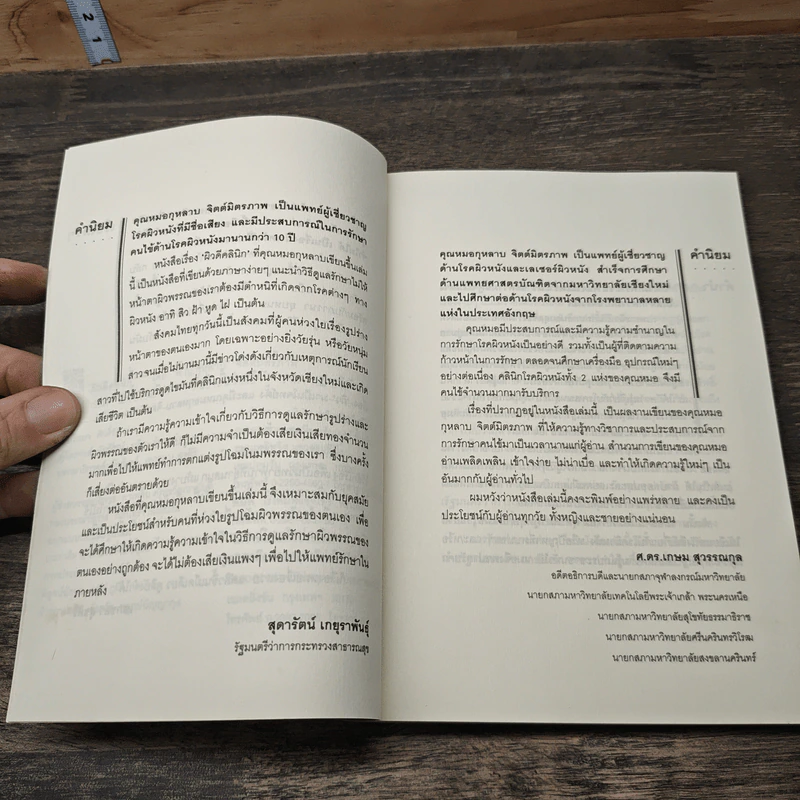 2
1
คำนิยม
คุณหมอกุหลาบ จิตต์มิตรภาพ เป็นแพทย์ผู้เชี่ยวชาญ
โรคผิวหนังที่มีชื่อเสียง และมีประสบการณ์ในการรักษา
คนไข้ด้านโรคผิวหนังมานานกว่า 10 ปี
หนังสือเรื่อง 'ผิวดีคลินิก' ที่คุณหมอกุหลาบเขียนขึ้นเล่ม
นี้ เป็นหนังสือที่เขียนด้วยภาษาง่ายๆ แนะนำวิธีดูแลรักษาไม่ให้
หน้าตาผิวพรรณของเราต้องมีตำหนิที่เกิดจากโรคต่างๆ ทาง
ผิวหนัง อาทิ สิว ฝ้า หูด ไฝ เป็นต้น
สังคมไทยทุกวันนี้เป็นสังคมที่ผู้คนห่วงใยเรื่องรูปร่าง
หน้าตาของตนเองมาก โดยเฉพาะอย่างยิ่งวัยรุ่น หรือวัยหนุ่ม
สาวจนเมื่อไม่นานมานี้มีข่าวโด่งดังเกี่ยวกับเหตุการณ์นักเรียน
สาวที่ไปใช้บริการดูดไขมันที่คลินิกแห่งหนึ่งในจังหวัดเชียงใหม่และเกิด
เสียชีวิต เป็นต้น
ถ้าเรามีความรู้ความเข้าใจเกี่ยวกับวิธีการดูแลรักษารูปร่างและ
ผิวพรรณของตัวเราให้ดี ก็ไม่มีความจำเป็นต้องเสียเงินเสียทองจำนวน
มากเพื่อไปให้แพทย์ทำการตกแต่งรูปโฉมโนมพรรณของเรา ซึ่งบางครั้ง
ก็เสี่ยงต่ออันตรายด้วย
หนังสือที่คุณหมอกุหลาบเขียนขึ้นเล่มนี้ จึงเหมาะสมกับยุคสมัย
และเป็นประโยชน์สำหรับคนที่ห่วงใยรูปโฉมผิวพรรณของตนเอง เพื่อ
จะได้ศึกษาให้เกิดความรู้ความเข้าใจในวิธีการดูแลรักษาผิวพรรณของ
ตนเองอย่างถูกต้อง จะได้ไม่ต้องเสียเงินแพงๆ เพื่อไปให้แพทย์รักษาใน
ภายหลัง
สุดารัตน์ เกยุราพันธุ์
รัฐมนตรีว่าการกระทรวงสาธารณสุข
คำนิยม
คุณหมอกุหลาบ จิตต์มิตรภาพ เป็นแพทย์ผู้เชี่ยวชาญ
ด้านโรคผิวหนังและเลเซอร์ผิวหนัง สำเร็จการศึกษา
ด้านแพทยศาสตรบัณฑิตจากมหาวิทยาลัยเชียงใหม่
และไปศึกษาต่อด้านโรคผิวหนังจากโรงพยาบาลหลาย
แห่งในประเทศอังกฤษ
คุณหมอมีประสบการณ์และมีความรู้ความชำนาญใน
การรักษาโรคผิวหนังเป็นอย่างดี รวมทั้งเป็นผู้ที่ติดตามความ
ก้าวหน้าในการรักษา ตลอดจนศึกษาเครื่องมือ อุปกรณ์ใหม่ๆ
อย่างต่อเนื่อง คลินิกโรคผิวหนังทั้ง 2 แห่งของคุณหมอ จึงมี
คนไข้จำนวนมากมารับบริการ
เรื่องที่ปรากฏอยู่ในหนังสือเล่มนี้ เป็นผลงานเขียนของคุณหมอ
กุหลาบ จิตต์มิตรภาพ ที่ให้ความรู้ทางวิชาการและประสบการณ์จาก
การรักษาคนไข้มาเป็นเวลานานแก่ผู้อ่าน สำนวนการเขียนของคุณหมอ
อ่านเพลิดเพลิน เข้าใจง่าย ไม่น่าเบื่อ และทำให้เกิดความรู้ใหม่ๆ เป็น
อันมากกับผู้อ่านทั่วไป
ผมหวังว่าหนังสือเล่มนี้คงจะพิมพ์อย่างแพร่หลาย และคงเป็น
ประโยชน์กับผู้อ่านทุกวัย ทั้งหญิงและชายอย่างแน่นอน
ศ.ดร.เกษม สุวรรณกุล
อดีตอธิการบดีและนายกสภาจุฬาลงกรณ์มหาวิทยาลัย
นายกสภามหาวิทยาลัยเทคโนโลยีพระเจ้าเกล้า พระนครเหนือ
นายกสภามหาวิทยาลัยสุโขทัยธรรมาธิราช
นายกสภามหาวิทยาลัยศรีนครินทรวิโรฒ
นายกสภามหาวิทยาลัยสงขลานครินทร์